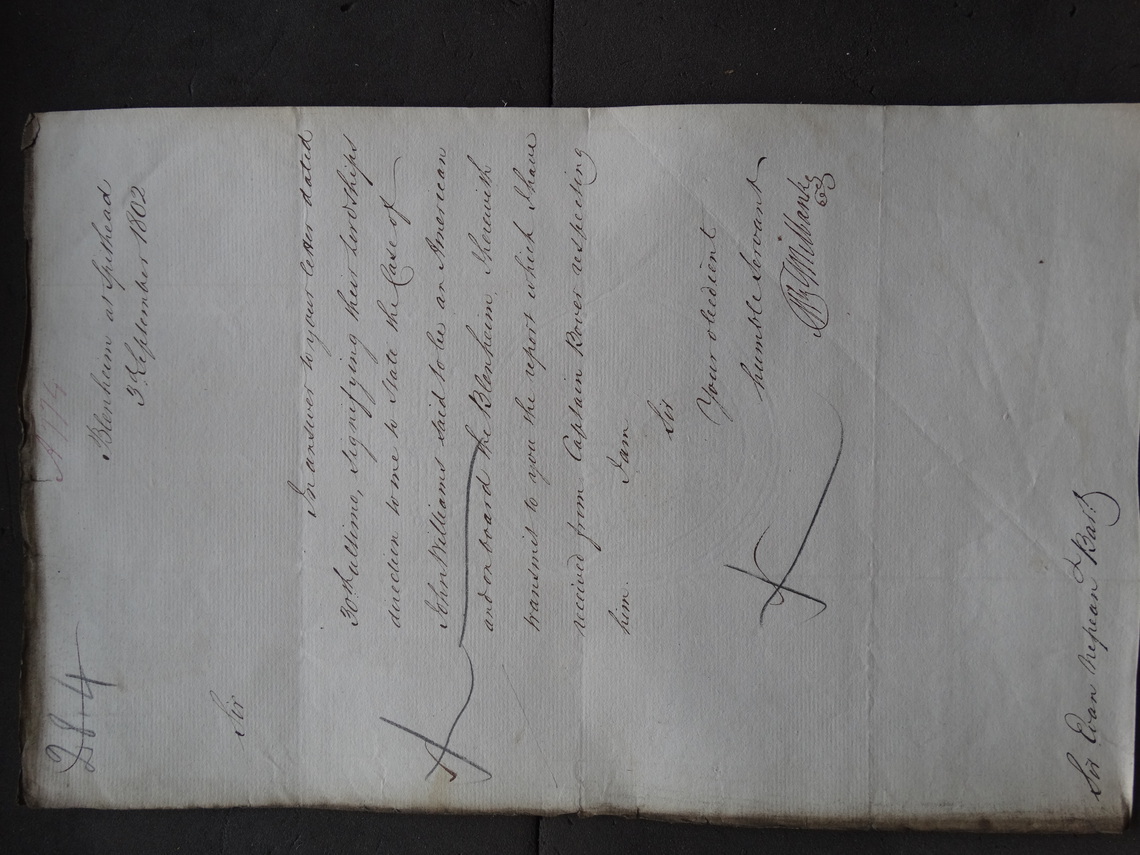 284
A774
Blenheim at Spithead
3d September 1802
Sir
In answer to your letter dated
30th ultimo, signifying their Lordships
direction to me to state the Case of
John Williams said to be an American
and on board the Blenheim, I herewith
transmit to you the report which I have
received from Captain Bover respecting
him.
I am
Sir
Your obedient
humble servant
Milbanke
Sir Evan Nepean Bart.